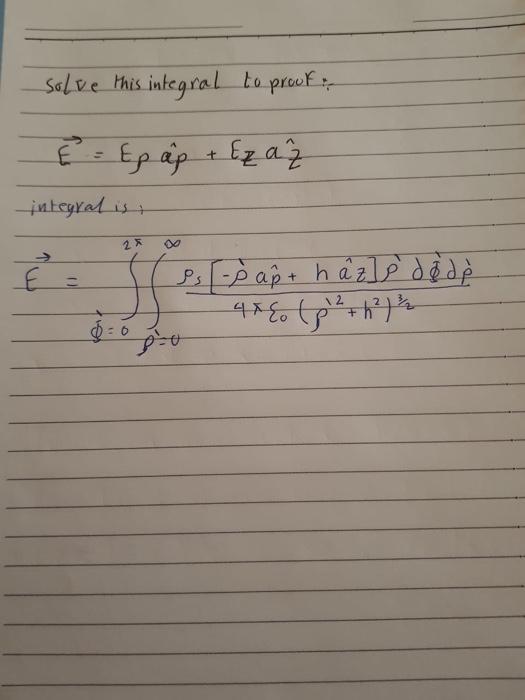 Solve this integral to proof :-
E⃗ = Eρ âρ + Ez âz
integral is :
E⃗ = ∫_{φ̀=0}^{2π} ∫_{ρ̀=0}^{∞} ρs [-ρ̀ âρ + h âz] ρ̀ dφ̀ dρ̀ / 4πε₀ (ρ̀² + h²)^{3/2}